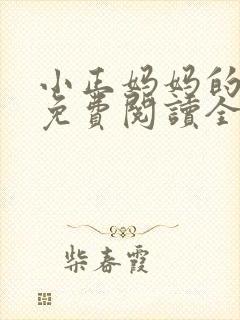 小正妈妈的
免费閱讀全
柴春霞